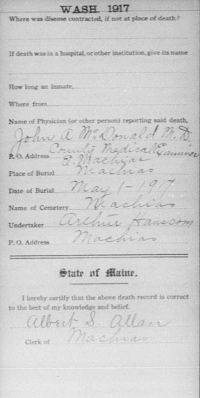 WASH. 1917
Where was disease contracted, if not at place of death?
If death was in a hospital, or other institution, give its name
How long an Inmate,
Where from
Name of Physician (or other person) reporting said death,
John A McDonald M.D.
County Medical Examiner
P.O. Address E Machias
Place of Burial Machias
Date of Burial May 1-1917
Name of Cemetery Machias
Undertaker Arthur Hanscom
P. O. Address Machias
State of Maine.
I hereby certify that the above death record is correct
to the best of my knowledge and belief.
Albert S. Allan
Clerk of Machias